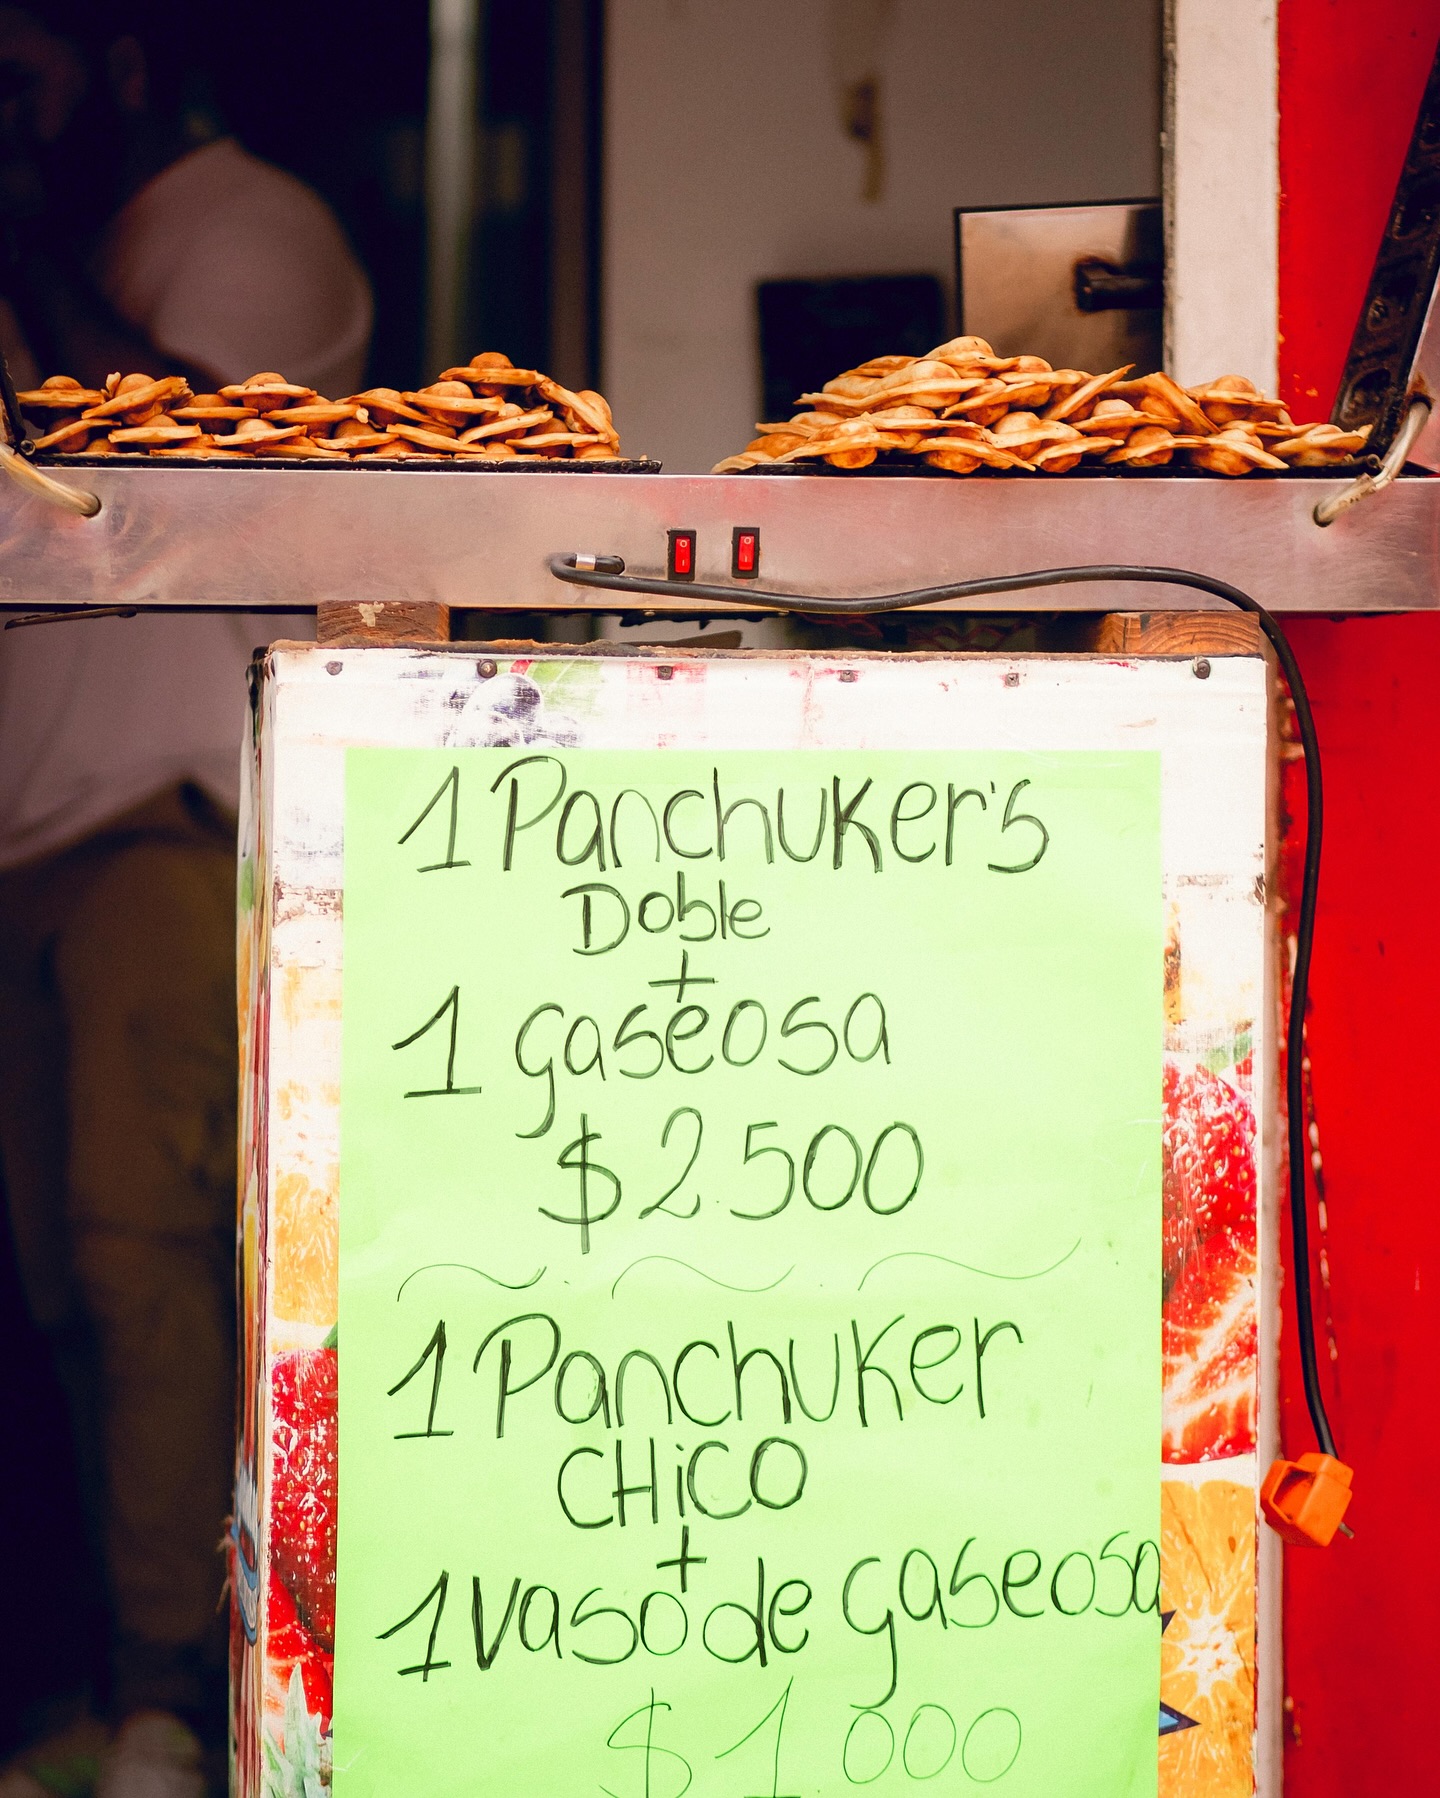 1 Panchuker's
Doble
+
1 gaseosa
$ 2.500
1 Panchuker
CHiCO
+
1 vaso de gaseosa
$ 1000